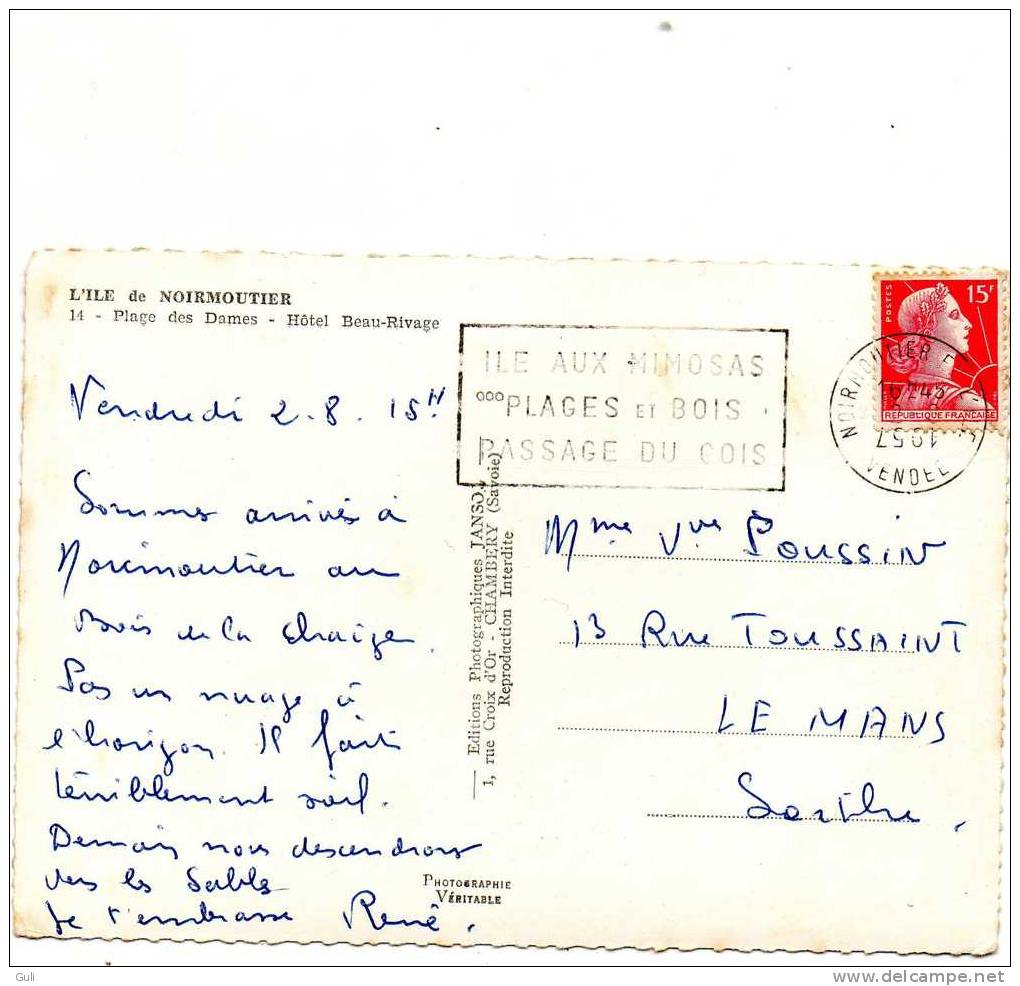 L'ILE de NOIRMOUTIER
14 - Plage des Dames - Hôtel Beau-Rivage
ILE AUX MIMOSAS
PLAGES ET BOIS
PASSAGE DU GOIS
POSTES
15F
REPUBLIQUE FRANCAISE
NOIRMOUTIER
1957
VENDEE
Vendredi 2.8. 15H
Sommes arrivés à
Noirmoutier au
Bois de la Chaize.
Pas un nuage à
l'horizon. Il fait
terriblement soif.
Demain nous descendrons
vers les Sables
Je t'embrasse René.
Editions Photographiques JANSOL
1, rue Croix d'Or - CHAMBERY (Savoie)
Reproduction Interdite
Mme Vve Poussin
13 Rue TOUSSAINT
LE MANS
Sarthe.
PHOTOGRAPHIE
VÉRITABLE
Guli
delcampe.net